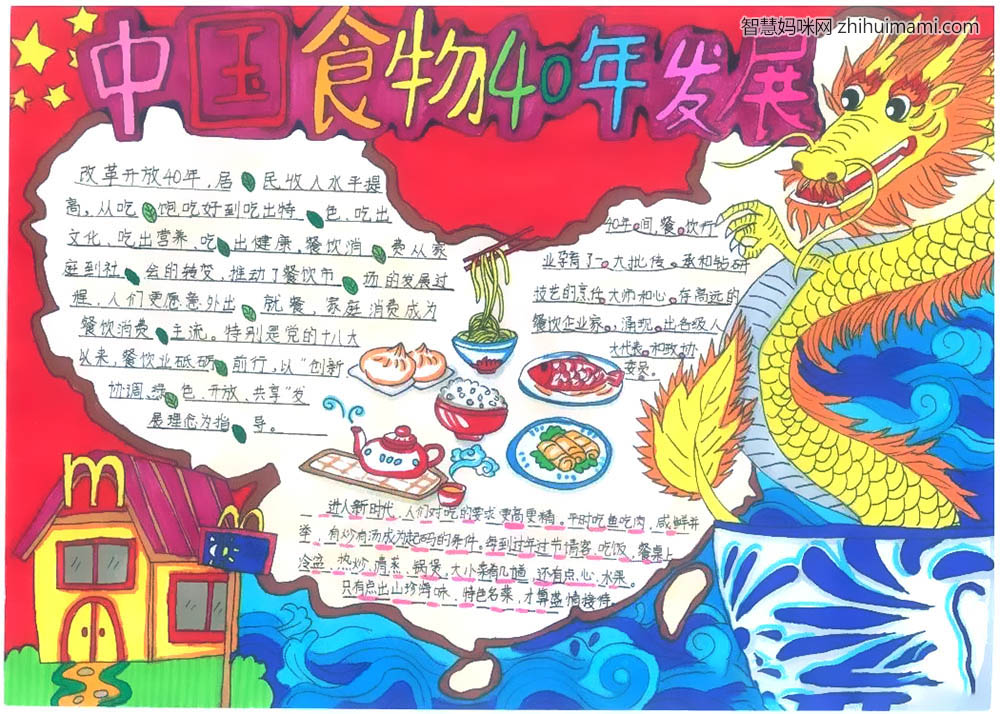 智慧妈咪网 zhihuimami.com
中国食物40年发展
改革开放40年,居民收入水平提
高。从吃饱吃好到吃出特色、吃出
文化、吃出营养、吃出健康。餐饮消费从家
庭到社会的转变,推动了餐饮市场的发展过
程,人们更愿意外出就餐,家庭消费成为
餐饮消费主流。特别是党的十八大
以来,餐饮业砥砺前行,以“创新
协调、绿色、开放、共享”发
展理念为指导。
40年间,餐饮行
业孕育了一大批传承和钻研
技艺的烹饪大师和心存高远的
餐饮企业家。涌现出各级人
大代表和政协
委员。
进入新时代,人们对吃的要求更高更精。平时吃鱼吃肉,咸鲜并
举,有炒有汤成为起码的条件。每到过年过节请客吃饭,餐桌上
冷盆、热炒、清蒸、锅煲、大小菜都几道,还有点心、水果。
只有点出山珍海味、特色名菜,才算盛情接待。